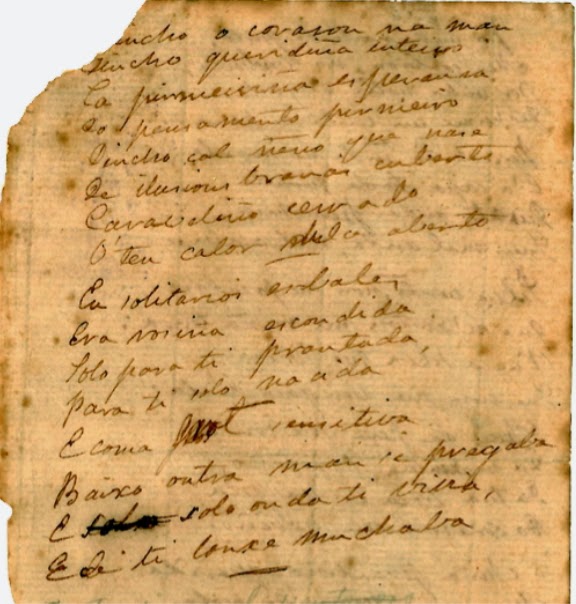 incho o corason na man
Dincho queridiña enteiros
Ca primeiriña esperansa
Co pensamento primeiro
Dincho cal neno que nase
De ilusions brancas cuberto
Caraudiño cerrado
O teu calor aberto
En solitarios
Era rosiña escondida
Solo para ti prantada,
Para ti solo nacida
E coma sensitiva
Baixo outra man se pregaba
E solo onda ti viva,
E de ti lonxe muchaba